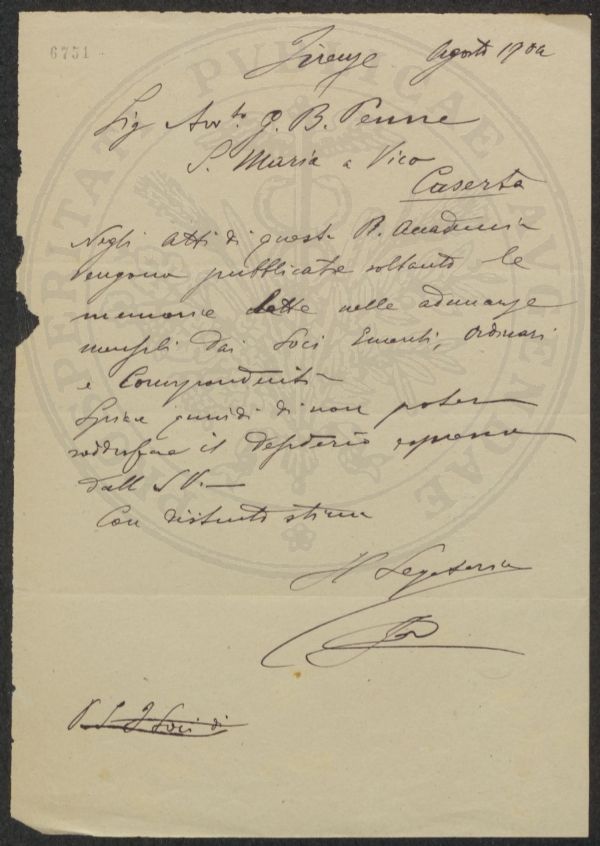 6751
Firenze Agosto 1902
Sig Avv.to G. B. Penne
S. Maria a Vico
Caserta
Negli Atti di questa R. Accademia
vengono pubblicate soltanto le
memorie lette nelle adunanze
mensili dai Soci Emeriti, Ordinari
e Corrispondenti
Spiace quindi di non poter
soddisfare il desiderio espresso
dall S.V.
Con distinta stima
Il Segretario
P.S. I Soci di
PROSPERITATI PUBLICAE AUGENDAE